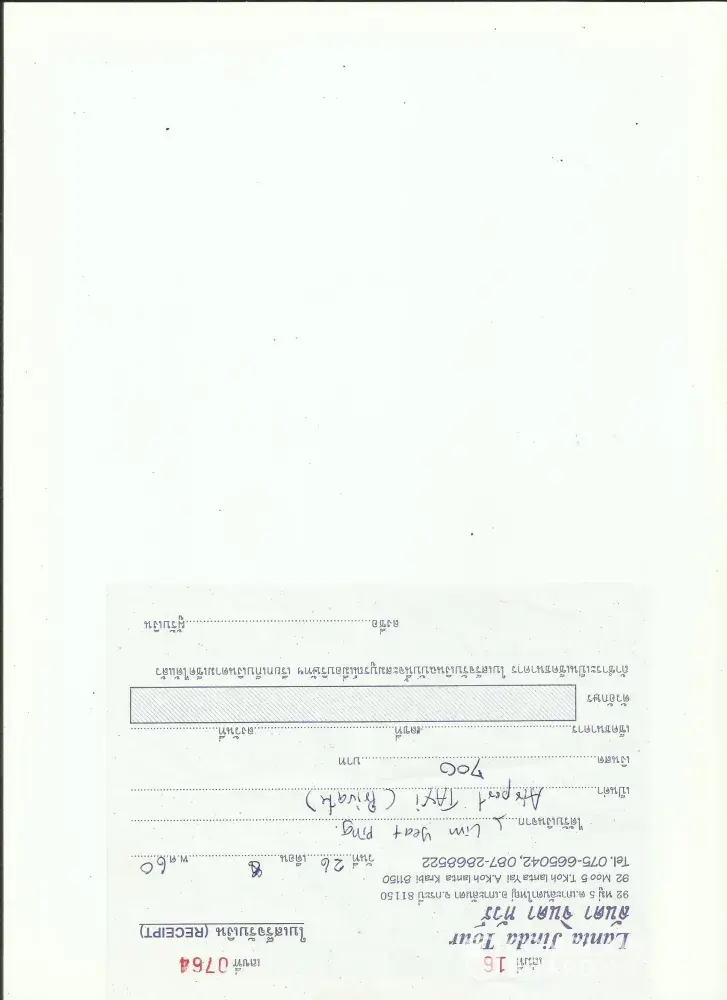 เล่มที่ 16 เลขที่ 0764
Lanta Jinda Tour
ลันตา จินดา ทัวร์ ใบเสร็จรับเงิน (RECEIPT)
92 หมู่ 5 ต.เกาะลันตาใหญ่ อ.เกาะลันตา จ.กระบี่ 81150
92 Moo 5 T.Koh lanta Yai A.Koh lanta Krabi 81150
Tel. 075-665042, 087-2868522
วันที่ 26 เดือน 8 พ.ศ. 60
ได้รับเงินจาก Lim Yeat Ping.
เป็นค่า Airport TAXi (Private)
เงินสด 700 บาท
เช็คธนาคาร เลขที่ ลงวันที่
ตัวอักษร
ถ้าชำระเป็นเช็คธนาคาร ใบเสร็จรับเงินฉบับนี้จะสมบูรณ์เมื่อบริษัทฯ เรียกเก็บเงินตามเช็คได้แล้ว
ลงชื่อ ผู้รับเงิน